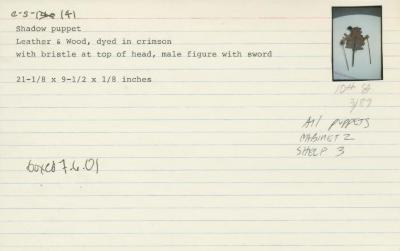 C-S- 141
Shadow puppet
Leather & Wood, dyed in crimson
with bristle at top of head, male figure with sword
21-1/8 x 9-1/2 x 1/8 inches
3/87
All puppets
CABINET 2
SHELF 3
boxed 7.6.01